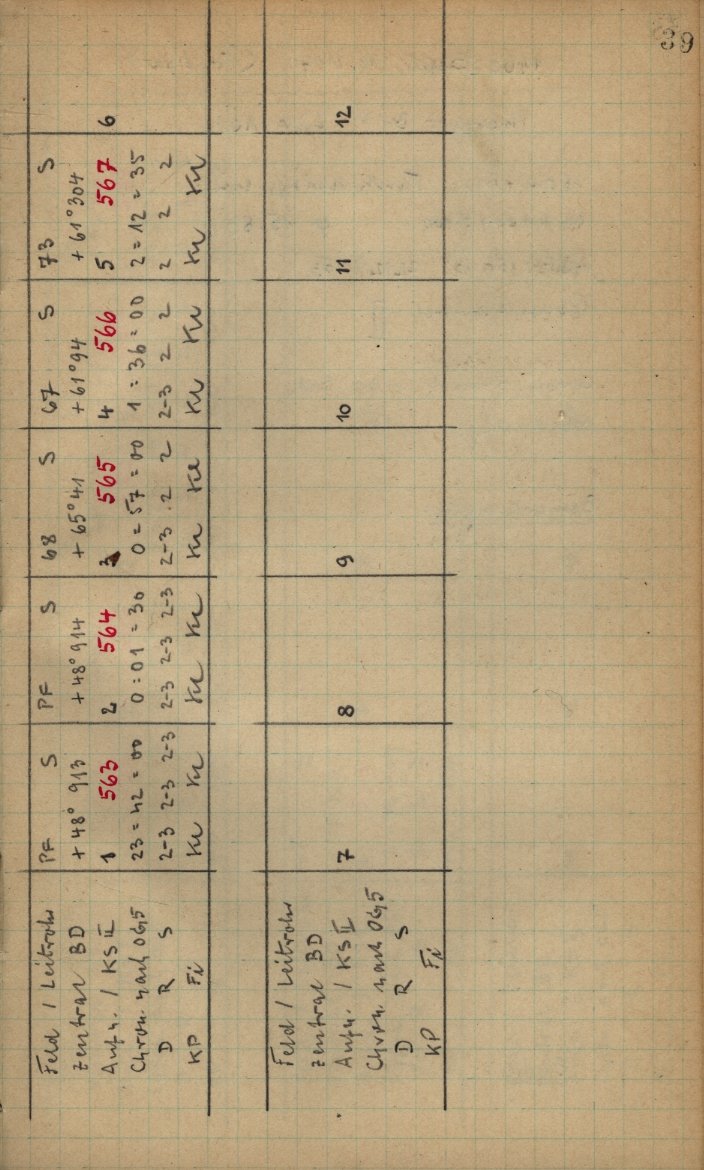 39
Feld / Leitrohr PF S PF S 68 S 67 S 73 S
Zentral BD +48° 913 +48° 914 +65° 41 +61° 94 +61° 304
Aufn. / KS II 1 563 2 564 3 565 4 566 5 567 6
Chron. nach 0505 23=42=00 0=01=30 0=57=00 1=36=00 2=12=35
D R S 2-3 2-3 2-3 2-3 2-3 2-3 2-3 2 2 2-3 2 2 2 2 2
KP Fi Ku Ku Ku Ku Ku Ku Ku Ku Ku Ku
Feld / Leitrohr
Zentral BD
Aufn. / KS II 7 8 9 10 11 12
Chron. nach
D R S
KP Fi